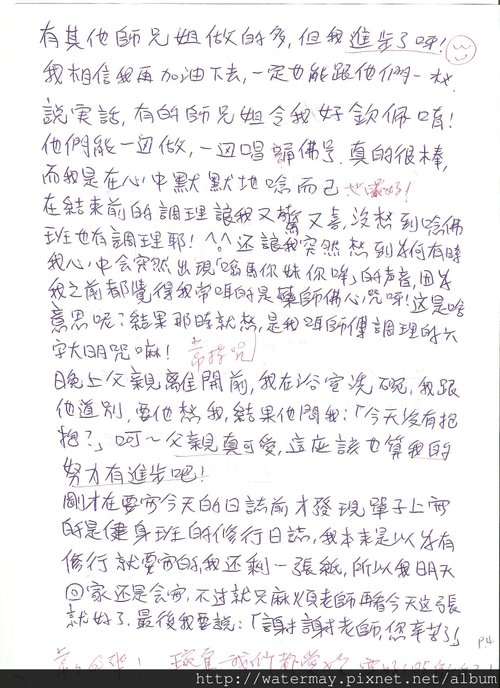 有其他師兄姐做的多，但我進步了呀！
我相信我再加油下去，一定也能跟他們一樣。
說實話，有的師兄姐令我好欽佩唷！
他們能一邊做，一邊唱誦佛号，真的很棒，
而我是在心中默默地唸而已 也嚇好！
在結束前的調理讓我又驚又喜，沒想到唸佛
班也有調理耶！^.^ 还讓我突然想到為何有時
我心中會突然出現「嗡嘛你妹你哞」的声音，因為
我之前都覺得我常唱的是藥師佛心咒呀！這是啥
意思呢？結果那時就想，是我唱師傅調理的六
字大明咒嘛！ 常持咒
晚上父親離開前，我在浴室洗碗，我跟
他道別，要他想我，結果他問我：「今天沒有抱
抱？」呵～父親真可愛，這應該也算我的
努力有進步吧！
剛才在要寫今天的日誌前才發現單子上寫
的是健身班的修行日誌，我本來是以為有
修行就要寫的，我还剩一張紙，所以我明天
回家还是会寫，不过就只麻煩老師再看今天这張
就好了。最後我要說：「謝謝老師，您辛苦了」
P.4
http://watermay.pixnet.net/album